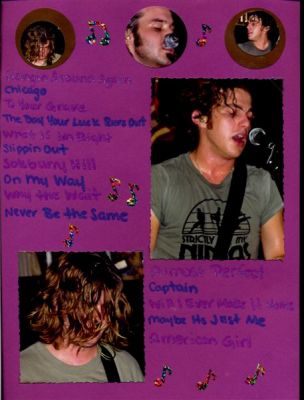 Hangin Around Again
Chicago
To Your Grave
The Day Your Luck Runs Out
What is in Right
Slippin Out
Solsbury Hill
On My Way
Why The Want
Never Be the Same
STRICTLY
Almost Perfect
Captain
Will I Ever Make it Home
Maybe Its Just Me
American Girl